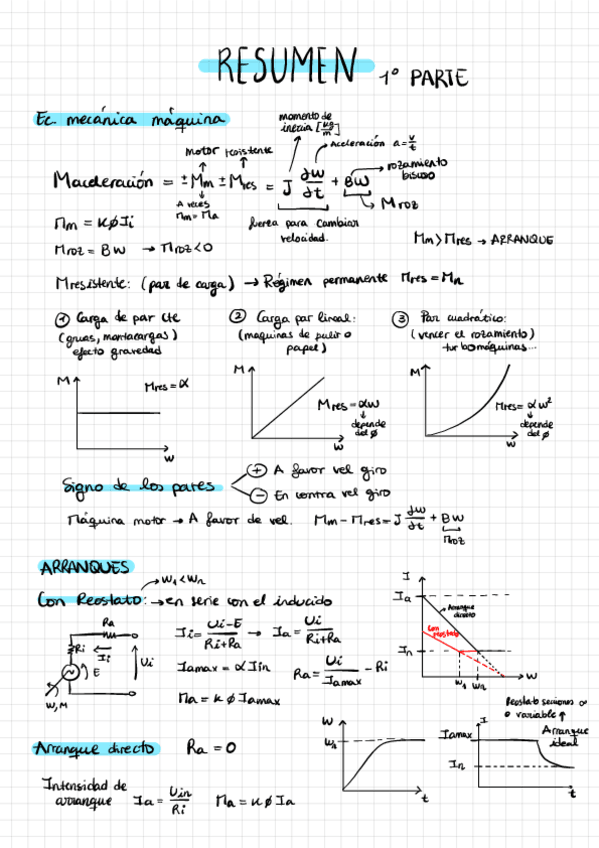 RESUMEN 1º PARTE
Ec. mecánica máquina
momento de
inercia [kg/m]
Aceleración a=v/t
motor resistente
rozamiento
Maceleración = ±Mm ±Mres = J dw/dt + Bw
A veces
Mm=Ma
Mroz
Mm = KØIi
fuerza para cambiar
velocidad.
Mm>Mres → ARRANQUE
Mroz = Bw → Mroz<0
Mresistente: (par de carga) → Régimen permanente Mres=Mn
① Carga de par cte
(gruas, montacargas)
efecto gravedad
② Carga par lineal:
(maquinas de pulir o
papel)
③ Par cuadrático:
(vencer el rozamiento)
turbomáquinas...
M
Mres=α
w
M
Mres=αw
depende
del Ø
w
M
Mres=αw²
depende
del Ø
w
Signo de los pares
+ A favor vel giro
− En contra vel giro
Máquina motor → A favor de vel. Mm−Mres=J dw/dt + Bw
Mroz
ARRANQUES
→w1<wn
Con Reostato: →en serie con el inducido
Ra
Ri
Ii
Ui
E
W,M
Ii= Ui−E/Ri+Ra → Ia= Ui/Ri+Ra
Iamax = αIin Ra= Ui/Iamax − Ri
Ma = KØIamax
I
Ia
Arranque
directo
Con
reostato
In
w1 wn w
Reostato secciones ∞
o variable ↑
Arranque directo Ra = 0
Intensidad de
arranque Ia= Uin/Ri Ma = KØIa
w
t
I
Iamax
Arranque
ideal
In
t